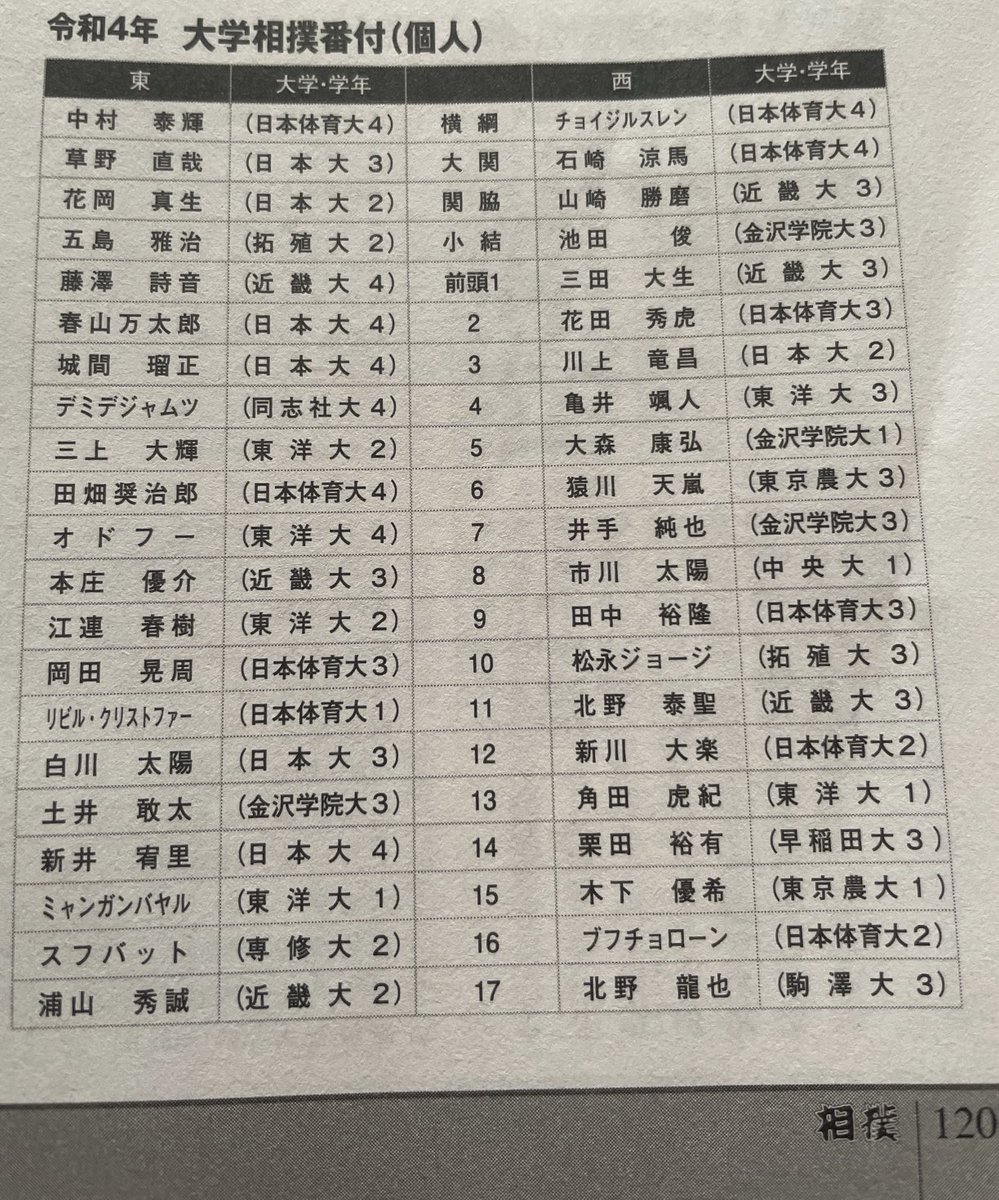 令和4年 大学相撲番付(個人)
東 大学・学年 西 大学・学年
中村 泰輝 (日本体育大4) 横綱 チョイジルスレン (日本体育大4)
草野 直哉 (日本大3) 大関 石崎 涼馬 (日本体育大4)
花岡 真生 (日本大2) 関脇 山崎 勝磨 (近畿大3)
五島 雅治 (拓殖大2) 小結 池田 俊 (金沢学院大3)
藤澤 詩音 (近畿大4) 前頭1 三田 大生 (近畿大3)
春山万太郎 (日本大4) 2 花田 秀虎 (日本体育大3)
城間 瑠正 (日本大4) 3 川上 竜昌 (日本大2)
デミデジャムツ (同志社大4) 4 亀井 颯人 (東洋大3)
三上 大輝 (東洋大2) 5 大森 康弘 (金沢学院大1)
田畑奨治郎 (日本体育大4) 6 猿川 天嵐 (東京農大3)
オドフー (東洋大4) 7 井手 純也 (金沢学院大3)
本庄 優介 (近畿大3) 8 市川 太陽 (中央大1)
江連 春樹 (東洋大2) 9 田中 裕隆 (日本体育大3)
岡田 晃周 (日本体育大3) 10 松永ジョージ (拓殖大3)
リビル・クリストファー (日本体育大1) 11 北野 泰聖 (近畿大3)
白川 太陽 (日本大3) 12 新川 大楽 (日本体育大2)
土井 敢太 (金沢学院大3) 13 角田 虎紀 (東洋大1)
新井 宥里 (日本大4) 14 栗田 裕有 (早稲田大3)
ミャンガンバヤル (東洋大1) 15 木下 優希 (東京農大1)
スフバット (専修大2) 16 ブフチョローン (日本体育大2)
浦山 秀誠 (近畿大2) 17 北野 龍也 (駒澤大3)
相撲 120